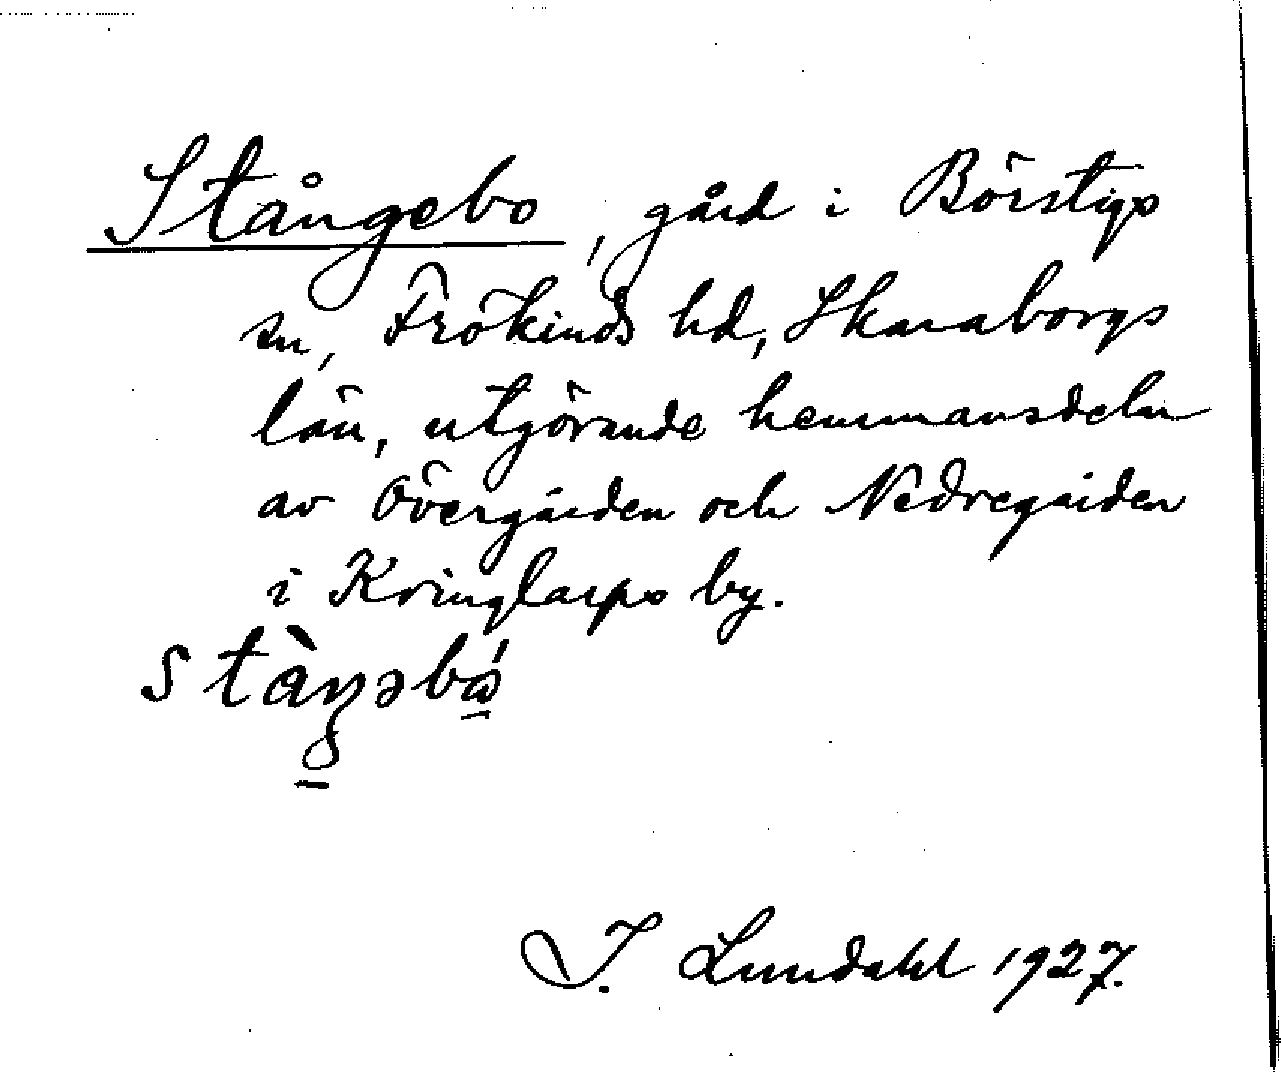 Stångebo, gård i Börstigs
sn, Frökinds hd, Skaraborgs
län, utgörande hemmansdelar
av Övergården och Nedregården
i Kringlarps by.
stàŋəbó
J. Lundahl 1927.